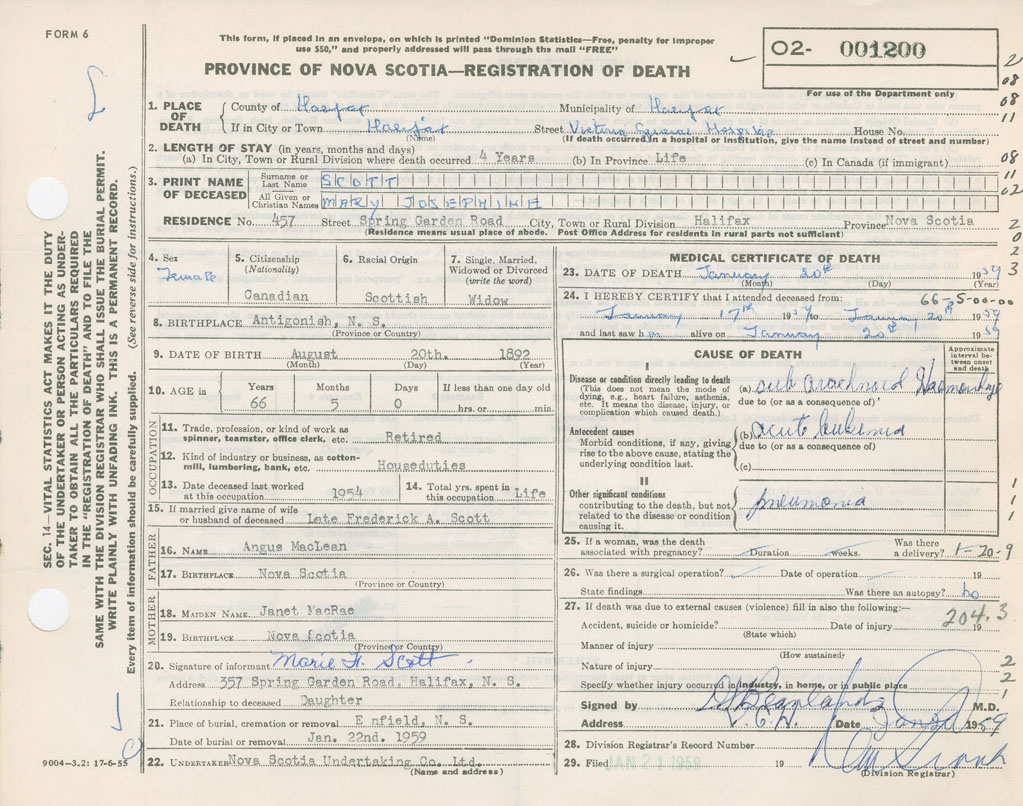 FORM 6
This form, if placed in an envelope, on which is printed "Dominion Statistics—Free, penalty for improper
use $50," and properly addressed will pass through the mail "FREE"
PROVINCE OF NOVA SCOTIA—REGISTRATION OF DEATH
02- 001200
For use of the Department only
2
08
08
11
08
11
02
2
0
2
3
SEC. 14—VITAL STATISTICS ACT MAKES IT THE DUTY
OF THE UNDERTAKER OR PERSON ACTING AS UNDER-
TAKER TO OBTAIN ALL THE PARTICULARS REQUIRED
IN THE "REGISTRATION OF DEATH" AND TO FILE THE
SAME WITH THE DIVISION REGISTRAR WHO SHALL ISSUE THE BURIAL PERMIT.
WRITE PLAINLY WITH UNFADING INK. THIS IS A PERMANENT RECORD.
Every item of information should be carefully supplied. (See reverse side for instructions.)
1. PLACE OF DEATH
County of Halifax Municipality of Halifax
If in City or Town Halifax Street Victoria General Hospital House No.
(Name) (If death occurred in a hospital or institution, give the name instead of street and number)
2. LENGTH OF STAY (in years, months and days)
(a) In City, Town or Rural Division where death occurred 4 Years (b) In Province Life (c) In Canada (if immigrant)
3. PRINT NAME OF DECEASED
Surname or Last Name SCOTT
All Given or Christian Names MARY JOSEPHINE
RESIDENCE No. 457 Street Spring Garden Road City, Town or Rural Division Halifax Province Nova Scotia
(Residence means usual place of abode. Post Office Address for residents in rural parts not sufficient)
4. Sex
Female
5. Citizenship
(Nationality)
Canadian
6. Racial Origin
Scottish
7. Single, Married,
Widowed or Divorced
(write the word)
Widow
8. BIRTHPLACE Antigonish, N. S.
(Province or Country)
9. DATE OF BIRTH August 20th. 1892
(Month) (Day) (Year)
10. AGE in
Years Months Days If less than one day old
66 5 0 hrs. or min.
OCCUPATION
11. Trade, profession, or kind of work as
spinner, teamster, office clerk, etc. Retired
12. Kind of industry or business, as cotton-
mill, lumbering, bank, etc. Houseduties
13. Date deceased last worked
at this occupation 1954
14. Total yrs. spent in
this occupation Life
15. If married give name of wife
or husband of deceased Late Frederick A. Scott
FATHER
16. NAME Angus MacLean
17. BIRTHPLACE Nova Scotia
(Province or Country)
MOTHER
18. MAIDEN NAME Janet MacRae
19. BIRTHPLACE Nova Scotia
(Province or Country)
20. Signature of informant Marie F. Scott
Address 357 Spring Garden Road, Halifax, N. S.
Relationship to deceased Daughter
21. Place of burial, cremation or removal Enfield, N. S.
Date of burial or removal Jan. 22nd. 1959
22. UNDERTAKER Nova Scotia Undertaking Co. Ltd.
(Name and address)
9004—3.2: 17-6-55
MEDICAL CERTIFICATE OF DEATH
23. DATE OF DEATH January 20th 1959
(Month) (Day) (Year)
24. I HEREBY CERTIFY that I attended deceased from: 66-5-00-00
January 17th 1959 to January 20th 1959
and last saw her alive on January 20th 1959
CAUSE OF DEATH
Approximate
interval be-
tween onset
and death
I
Disease or condition directly leading to death
(This does not mean the mode of
dying, e.g., heart failure, asthenia,
etc. It means the disease, injury, or
complication which caused death.)
(a) sub arachnoid Haemorrhage
due to (or as a consequence of)
Antecedent causes
Morbid conditions, if any, giving
rise to the above cause, stating the
underlying condition last.
(b) acute leukemia
due to (or as a consequence of)
(c)
II
Other significant conditions
contributing to the death, but not
related to the disease or condition
causing it.
pneumonia
1
1
1
25. If a woman, was the death
associated with pregnancy? Duration weeks. Was there
a delivery? 1-20-9
26. Was there a surgical operation? Date of operation 19
State findings Was there an autopsy? no
27. If death was due to external causes (violence) fill in also the following:—
204.3
Accident, suicide or homicide? Date of injury 19
(State which)
Manner of injury
(How sustained)
Nature of injury
Specify whether injury occurred in industry, in home, or in public place
2
2
1
Signed by M.D.
Address V.G.H. Date Jan 1959
28. Division Registrar's Record Number
29. Filed JAN 21 1959 19
(Division Registrar)